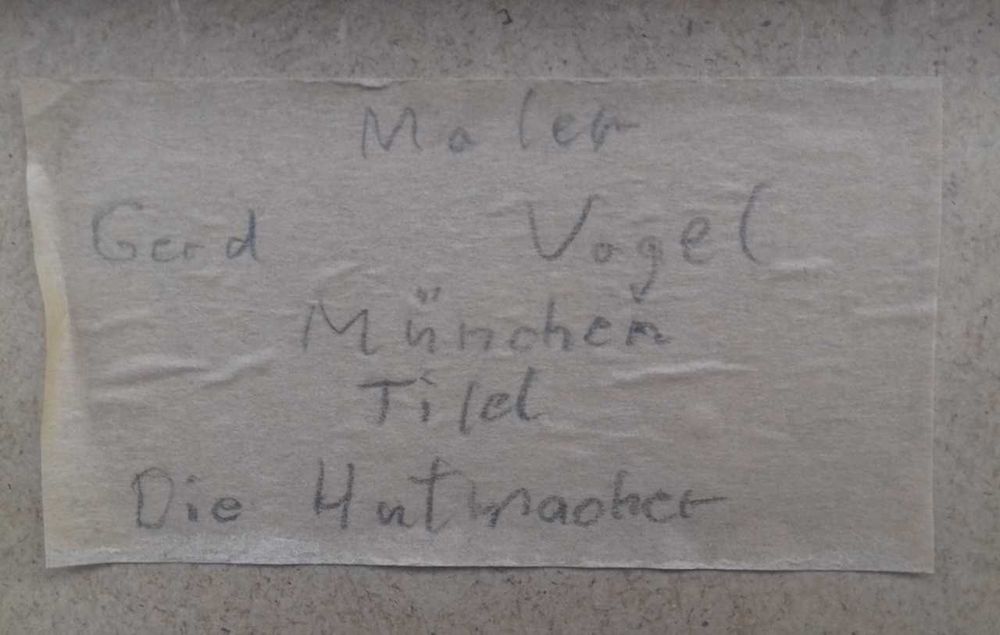 Maler
Gerd Vogel
München
Tild
Die Hutmacher